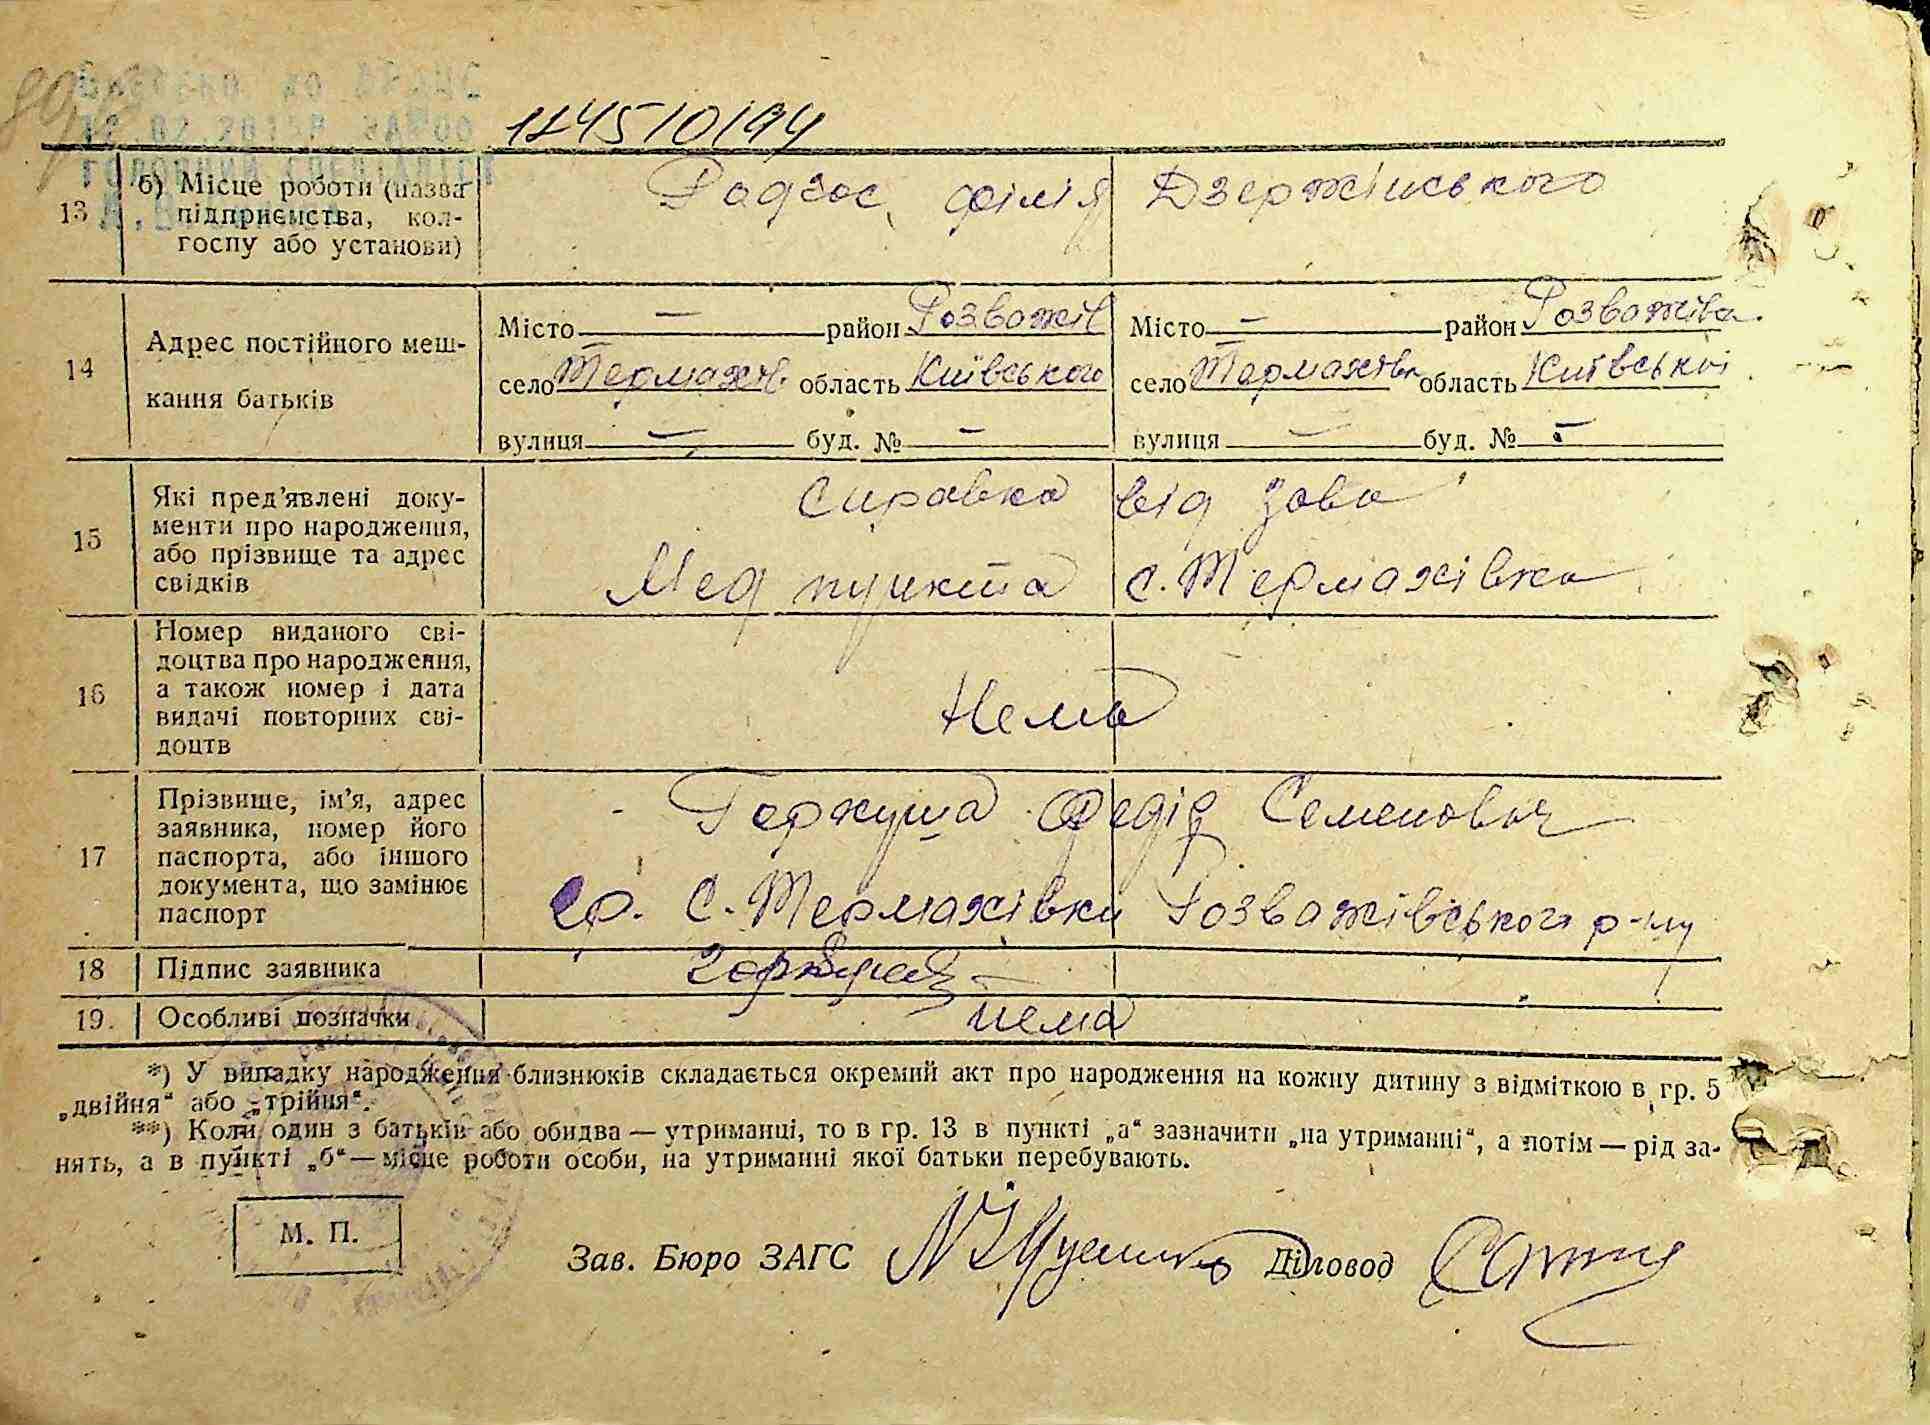 124510194
13 б) Місце роботи (назва
підприємства, кол-
госпу або установи)
Радгос, філія Дзержинського
14 Адрес постійного меш-
кання батьків
Місто — район Розважів Місто — район Розважівск.
село Термахів область Київського село Термахівка область Київській
вулиця — буд. № — вулиця — буд. № —
15 Які пред’явлені доку-
менти про народження,
або прізвище та адрес
свідків
Справка від зова
Мед пункта с. Термахівка
16 Номер виданого сві-
доцтва про народження,
а також номер і дата
видачі повторних сві-
доцтв
Нема
17 Прізвище, ім’я, адрес
заявника, номер його
паспорта, або іншого
документа, що замінює
паспорт
Геркуша Федір Семенович
гр. С. Термахівки Розважівського р-ну
18 Підпис заявника
19. Особливі позначки нема
*) У випадку народження близнюків складається окремий акт про народження на кожну дитину з відміткою в гр. 5
„двійня“ або „трійня“.
**) Коли один з батьків або обидва — утриманці, то в гр. 13 в пункті „а“ зазначити „на утриманні“, а потім — рід за-
нять, а в пункті „б“ — місце роботи особи, на утриманні якої батьки перебувають.
М. П.
Зав. Бюро ЗАГС Діловод